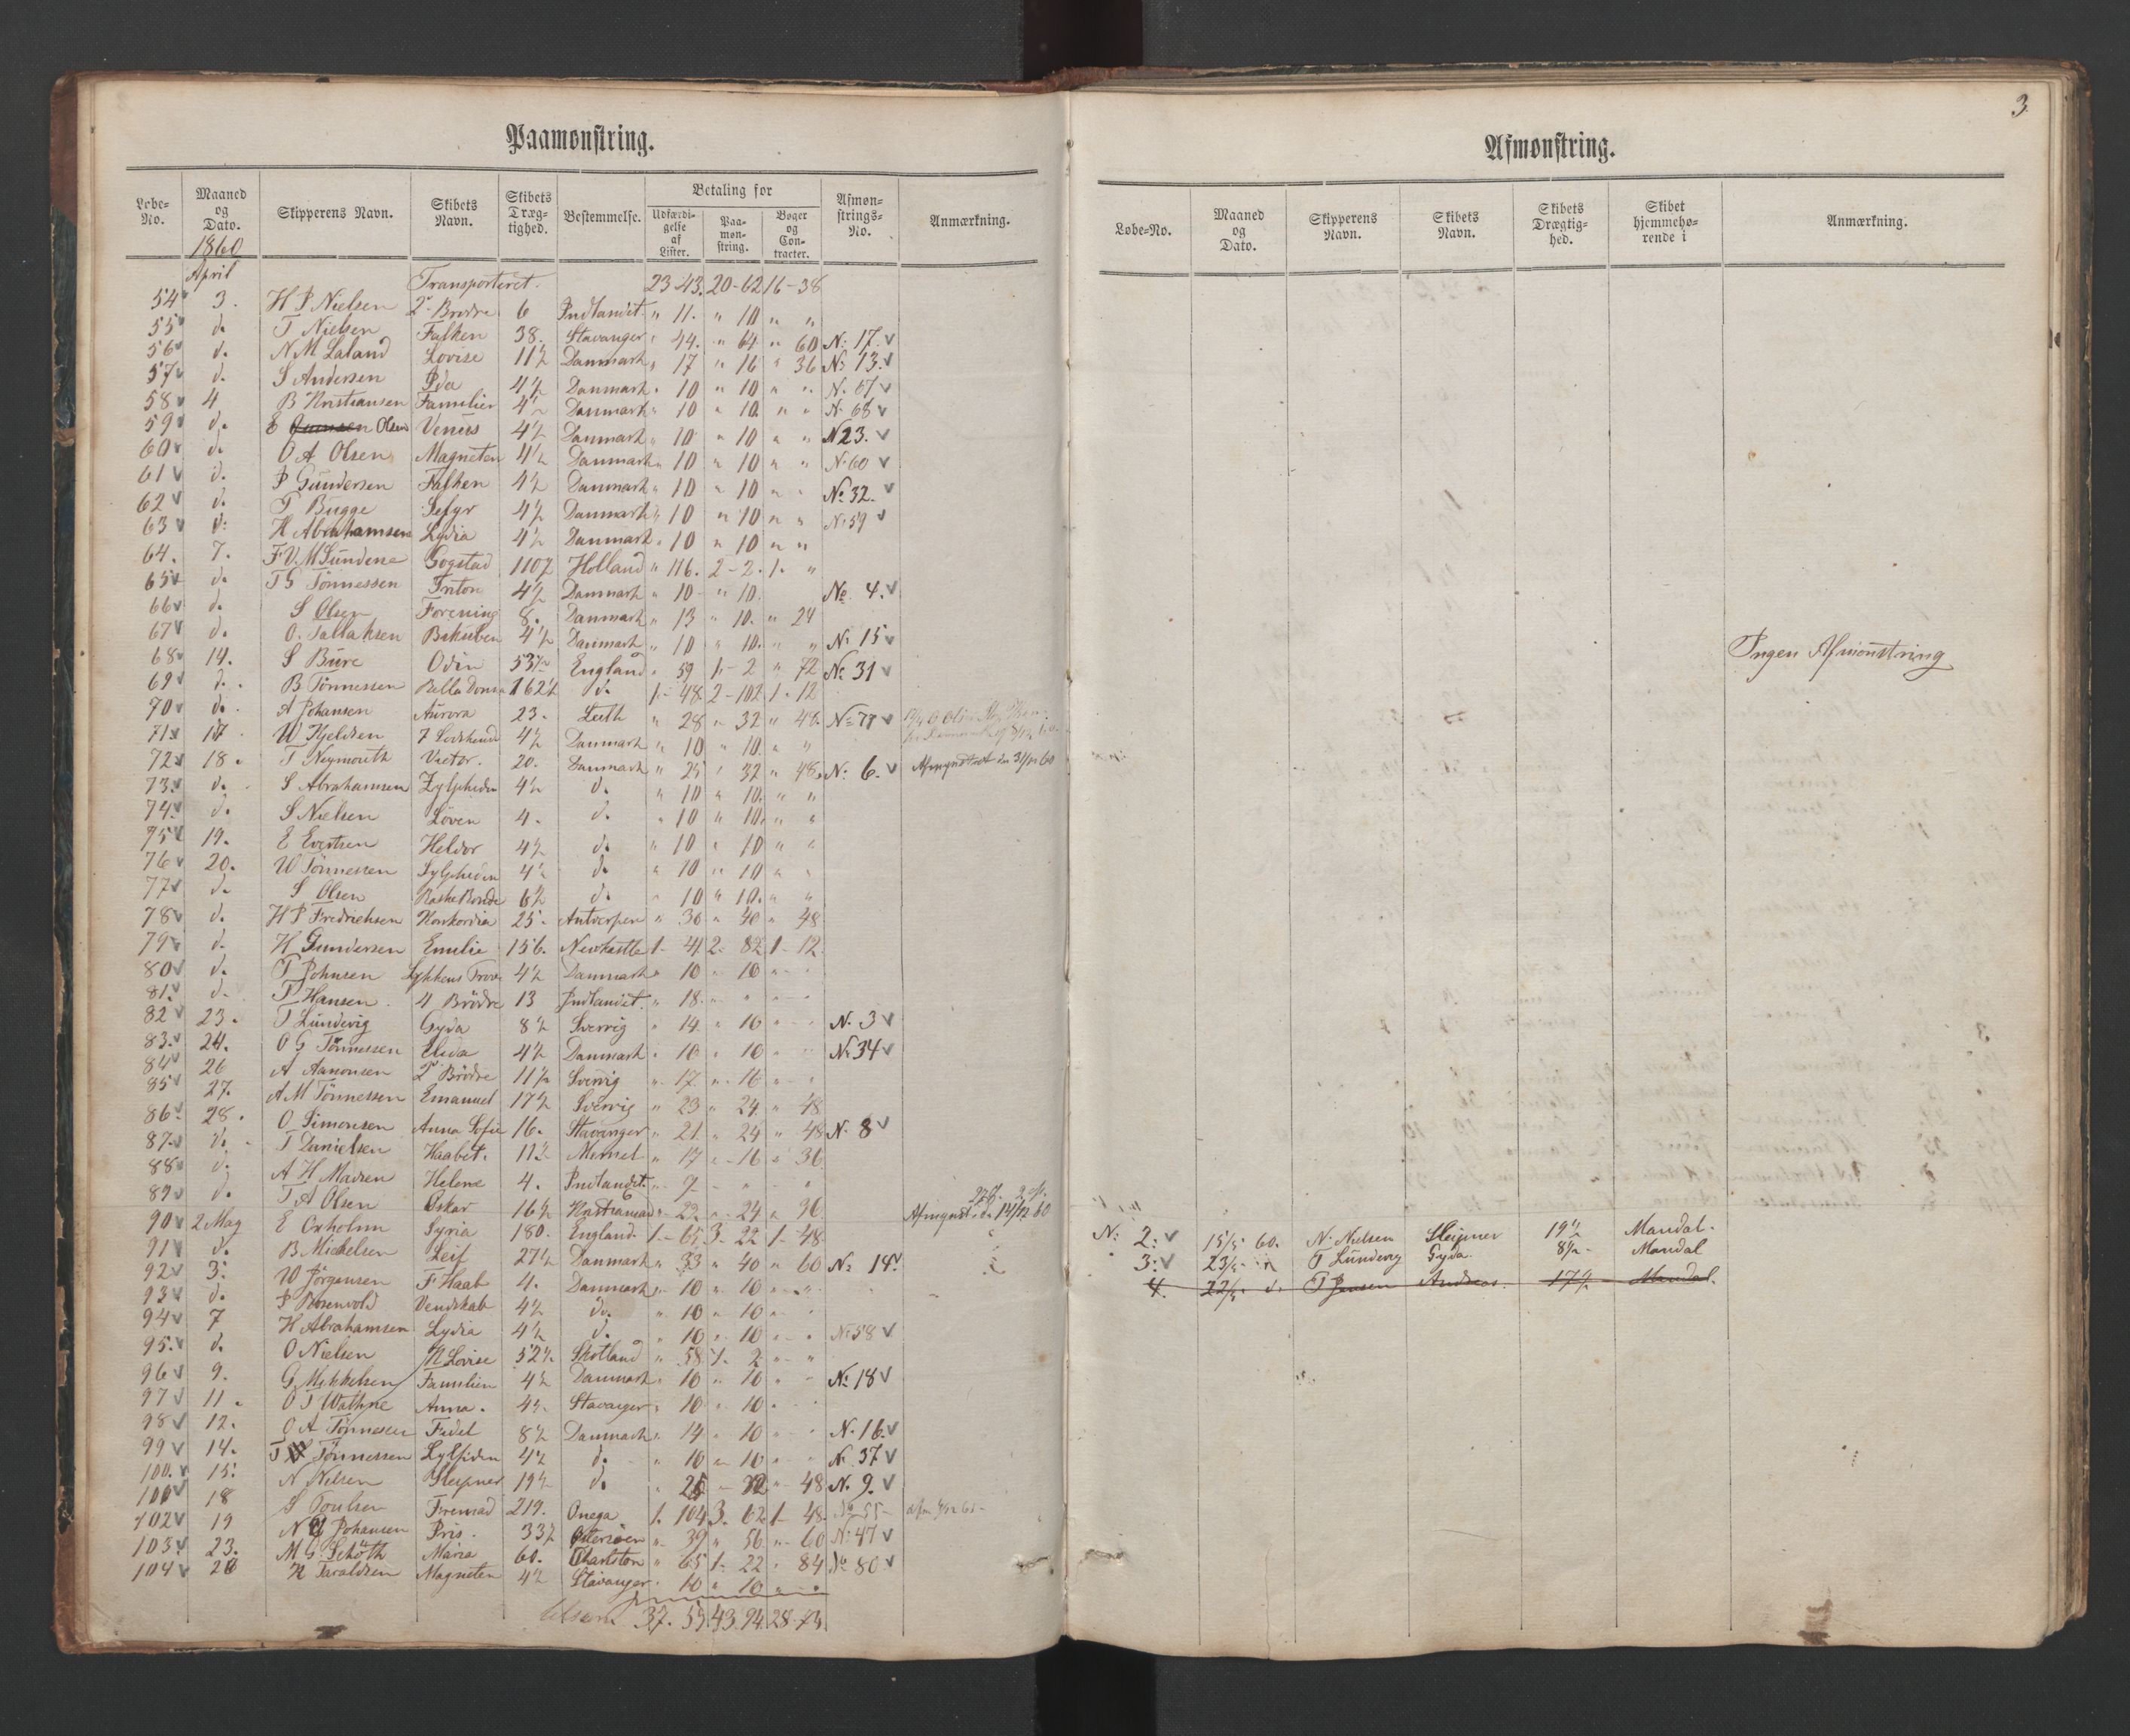 Paamønstring.
Løbe-No. Maaned og Dato. Skipperens Navn. Skibets Navn. Skibets Dræg-tighed. Bestemmelse. Betaling for Udfærdi-gelse af Lister. Paa-møn-string. Bøger og Con-tracter. Afmøn-strings-No. Anmærkning.
1860
April Transporteret. 23-43. 20-62 16-38
54 3. H P Nielsen 2 Brødre 6 Indlandet " 11. " 10 " "
55 d. T Nielsen Falken 38. Stavanger " 44. " 64 " 60 N: 17.
56 d. N M Laland Lovise 11½ Danmark " 17 " 16 " 36 No 13.
57 d. S Andersen Ida 4½ Danmark " 10 " 10 " " N. 67
58 4 B Kristiansen Familien 4½ Danmark " 10 " 10. " " N. 68
59 d. E Olsen Venus 4½ Danmark " 10 " 10 " " N 23.
60 d. O A Olsen Magneten 4½ Danmark " 10 " 10 " " N. 60
61 d. P Gundersen Falken 4½ Danmark " 10 " 10 " " No 32.
62 d. T Bugge Sefyr 4½ Danmark " 10 " 10 " " No 59
63 d. H Abrahamsen Lydia 4½ Danmark " 10 " 10 " "
64. 7. F V. M Sundene Gogstad 110½ Holland " 116. 2-2. 1. "
65 d. T G Tönnessen Triton 4½ Danmark " 10 " 10. No. 4.
66 d. S Olsen Forening 8. Danmark " 13 " 10. " 24
67 d. O. Tallaksen Bikuben 4½ Danmark " 10 " 10. " " No 15
68 14. S Bure Odin 53½ England " 59 1.- 2 " 72 No 31
69 d. B Tönnessen Bella Donna 162½ d. 1.- 48. 2-102. 1. 12
70 d. A Johansen Aurora 23. Leith " 28 " 32 " 48. No 77
71 17 W Kjeldsen 4½ Danmark " 10 " 10. " "
72 18. T Neymouth Victor. 20. Danmark " 25 " 32 " 48. No: 6. Afmynstret den 31/12 60
73. d. S Abrahamsen Zylpheden 4½ d. " 10 " 10. " "
74. d. S Nielsen Löven 4. d. " 10 " 10. " "
75 19. E Evertsen Heldor 4½ d. " 10 " 10 " "
76 20. W Tönnessen Sylpheden 4½ d. " 10 " 10 " "
77 d. S Olsen Raske Bonde 6½ d. " 10 " 10. " "
78 d. H P Fredriksen Konkordia 25. Antverpen " 36 " 40 " 48
79 d. H Gundersen Emilie 156. Newkastle 1- 41 2. 82 1- 12.
80 d. T Johnsen Lykkens Prove 4½ Danmark " 10 " 10 " "
81. d. T Hansen. 4 Brödre 13 Indlandet. " 18. " " " "
82 23. T Lundevig Gyda 8½ Sverrig " 14 " 10 " " N. 3
83. 24. O G Tönnessen Elida 4½ Danmark " 10 " 10 " " No 34
84 26 A Aanonsen 2 Brödre 11½ Sverrig " 17 " 16 " "
85 27. A M Tönnessen Emanuel 17½ Sverrig " 23 " 24 " 48
86. 28. O Simonsen Anna Sofie 16. Stavanger " 21. " 24 " 48 N. 8
87. d. T Danielsen Haabet. 11½ Memel " 17 " 16 " 36
88 d. A H Madsen Helene 4. Indlandet. " 9 " " " "
89 d. T A Olsen Oskar 16½ Kristiansand " 22 " 24 " 36
90 2 Mag E Oxholm Syria 180. England. 1.- 65 3. 22 1- 48 Afmynst. d. 14/12 60
91 d. B Mickelsen Leif 27½ Danmark " 33 " 40 " 60 No 14.
92 3. W Jörgensen F Haab 4. Danmark " 10 " 10 " "
93 d. P Rosenvold Vendskab 4½ do. " 10 " 10 " "
94 7 H Abrahamsen Lydia 4½ d. " 10 " 10 " " No 58
95. d. O Nielsen N Lovise 52½. Skotland " 58 1. 2 " "
96 9. G Mikkelsen Familien 4½ Danmark " 10 " 10 " " No 18
97 11. O T Wathne Anna. 4½. Stavanger " 10 " 10 " "
98 12. O A Tönnessen Fidel 8½ Danmark " 14 " 10 " " N. 16.
99 14. T Tönnessen Sylfiden 4½ d. " 10 " 10 " " No. 37
100. 15. N Nilsen Sleipner 19½ d. " 25 " 32 " 48 N. 9.
101 18 S Poulsen Fremad 219. Onega 1. 104 3. 62 1- 48. No 55
102 19 N Johansen Pris. 33½ Østersöen " 39 " 56 " 60 No 47
103. 23. M G Schöth Maria 60. Charlston " 65 1. 22 " 84 No 80
104 26 N Taraldsen Magneten 4½ Stavanger " 10 " 10 " "
37. 55. 43. 94. 28-74.
3.
Afmønstring.
Løbe-No. Maaned og Dato. Skipperens Navn. Skibets Navn. Skibets Drægtig-hed. Skibet hjemmehø-rende i Anmærkning.
Ingen Afmönstring
N: 2: 15/5 60. N. Nielsen Sleipner 19½ Mandal.
3: 23/5 T Lundevig Gyda. 8½. Mandal
4. 22/5 d. T Jensen Andreas. 17½ Mandal.